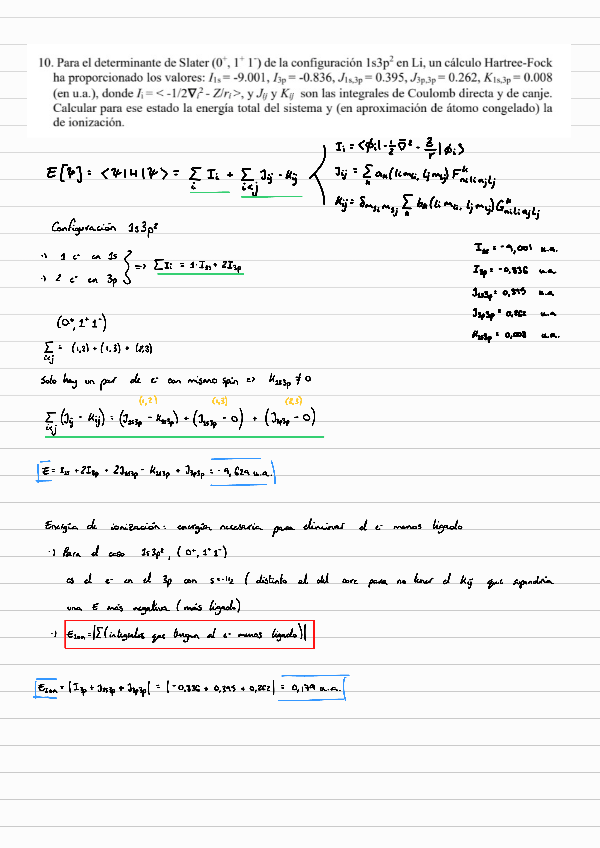 10. Para el determinante de Slater (0⁺, 1⁺ 1⁻) de la configuración 1s3p² en Li, un cálculo Hartree-Fock
ha proporcionado los valores: I₁ₛ = -9.001, I₃ₚ = -0.836, J₁ₛ,₃ₚ = 0.395, J₃ₚ,₃ₚ = 0.262, K₁ₛ,₃ₚ = 0.008
(en u.a.), donde Iᵢ = < -1/2∇ᵢ² - Z/rᵢ >, y Jᵢⱼ y Kᵢⱼ son las integrales de Coulomb directa y de canje.
Calcular para ese estado la energía total del sistema y (en aproximación de átomo congelado) la
de ionización.
E[Ψ] = <Ψ|H|Ψ> = Σᵢ Iᵢ + Σ_{i<j} Jᵢⱼ - Kᵢⱼ
Iᵢ = <ϕᵢ|-½ ∇² - Z/r|ϕᵢ>
Jᵢⱼ = Σₖ aₖ(lᵢmₗᵢ, lⱼmₗⱼ) Fᵏ_{nᵢlᵢnⱼlⱼ}
Kᵢⱼ = δ_{msᵢ msⱼ} Σₖ bₖ(lᵢmₗᵢ, lⱼmₗⱼ) Gᵏ_{nᵢlᵢnⱼlⱼ}
Configuración 1s3p²
-> 1 e⁻ en 1s
-> 2 e⁻ en 3p
=> ΣIᵢ = 1·I₁ₛ + 2I₃ₚ
I₁ₛ = -9,001 u.a.
I₃ₚ = -0,836 u.a.
J₁ₛ₃ₚ = 0,395 u.a.
J₃ₚ₃ₚ = 0,262 u.a.
K₁ₛ₃ₚ = 0,008 u.a.
(0⁺, 1⁺ 1⁻)
Σ_{i<j} = (1,2) + (1,3) + (2,3)
Solo hay un par de e⁻ con mismo spin => K₁ₛ₃ₚ ≠ 0
(1,2) (1,3) (2,3)
Σ_{i<j} (Jᵢⱼ - Kᵢⱼ) = (J₁ₛ₃ₚ - K₁ₛ₃ₚ) + (J₁ₛ₃ₚ - 0) + (J₃ₚ₃ₚ - 0)
E = I₁ₛ + 2I₃ₚ + 2J₁ₛ₃ₚ - K₁ₛ₃ₚ + J₃ₚ₃ₚ = -9,629 u.a.
Energía de ionización: energía necesaria para eliminar el e⁻ menos ligado
-> Para el caso 1s3p², (0⁺, 1⁺1⁻)
es el e⁻ en el 3p con s=-1/2 (distinto al del core para no tener el Kij que supondría
una E más negativa (más ligado)
-> Eᵢₒₙ = |Σ(integrales que tengan al e⁻ menos ligado)|
Eᵢₒₙ = |I₃ₚ + J₁ₛ₃ₚ + J₃ₚ₃ₚ| = |-0,836 + 0,395 + 0,262| = 0,179 u.a.